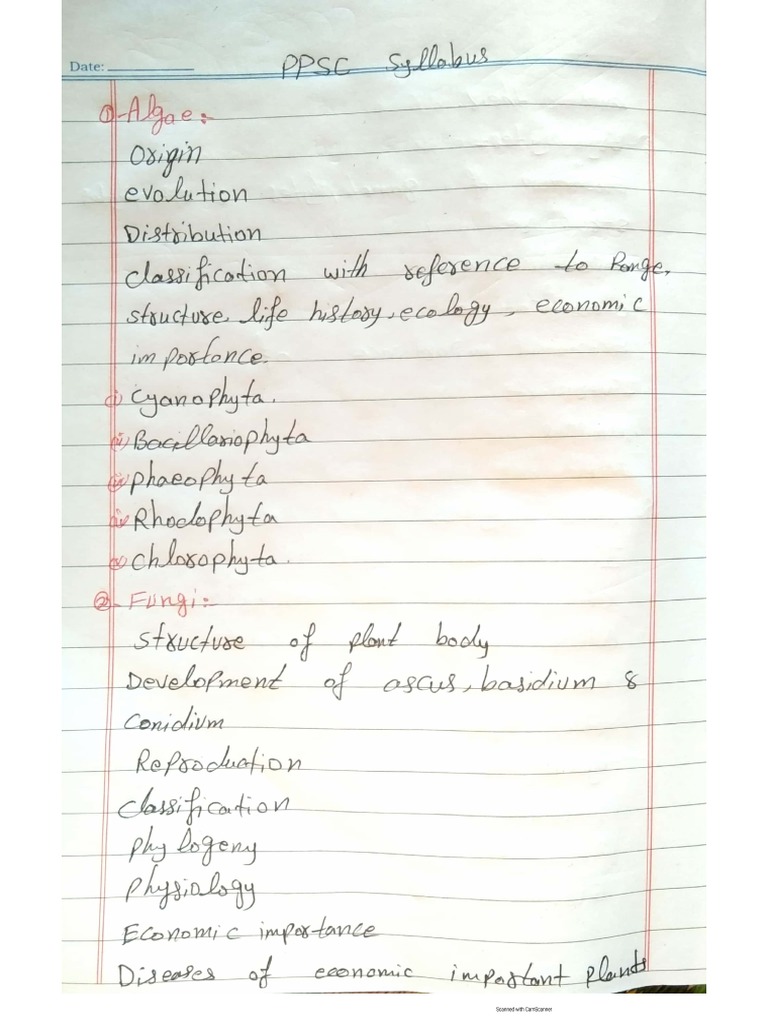 Date:
PPSC Syllabus
① - Algae :-
Origin
evolution
Distribution
classification with reference to Range,
structure, life history, ecology, economic
importance.
(i) Cyanophyta.
(ii) Bacillariophyta
(iii) Phaeophyta
(iv) Rhodophyta
(v) Chlorophyta.
② - Fungi :-
structure of plant body
Development of ascus, basidium &
Conidium
Reproduction
classification
phylogeny
physiology
Economic importance
Diseases of economic important plants
Scanned with CamScanner